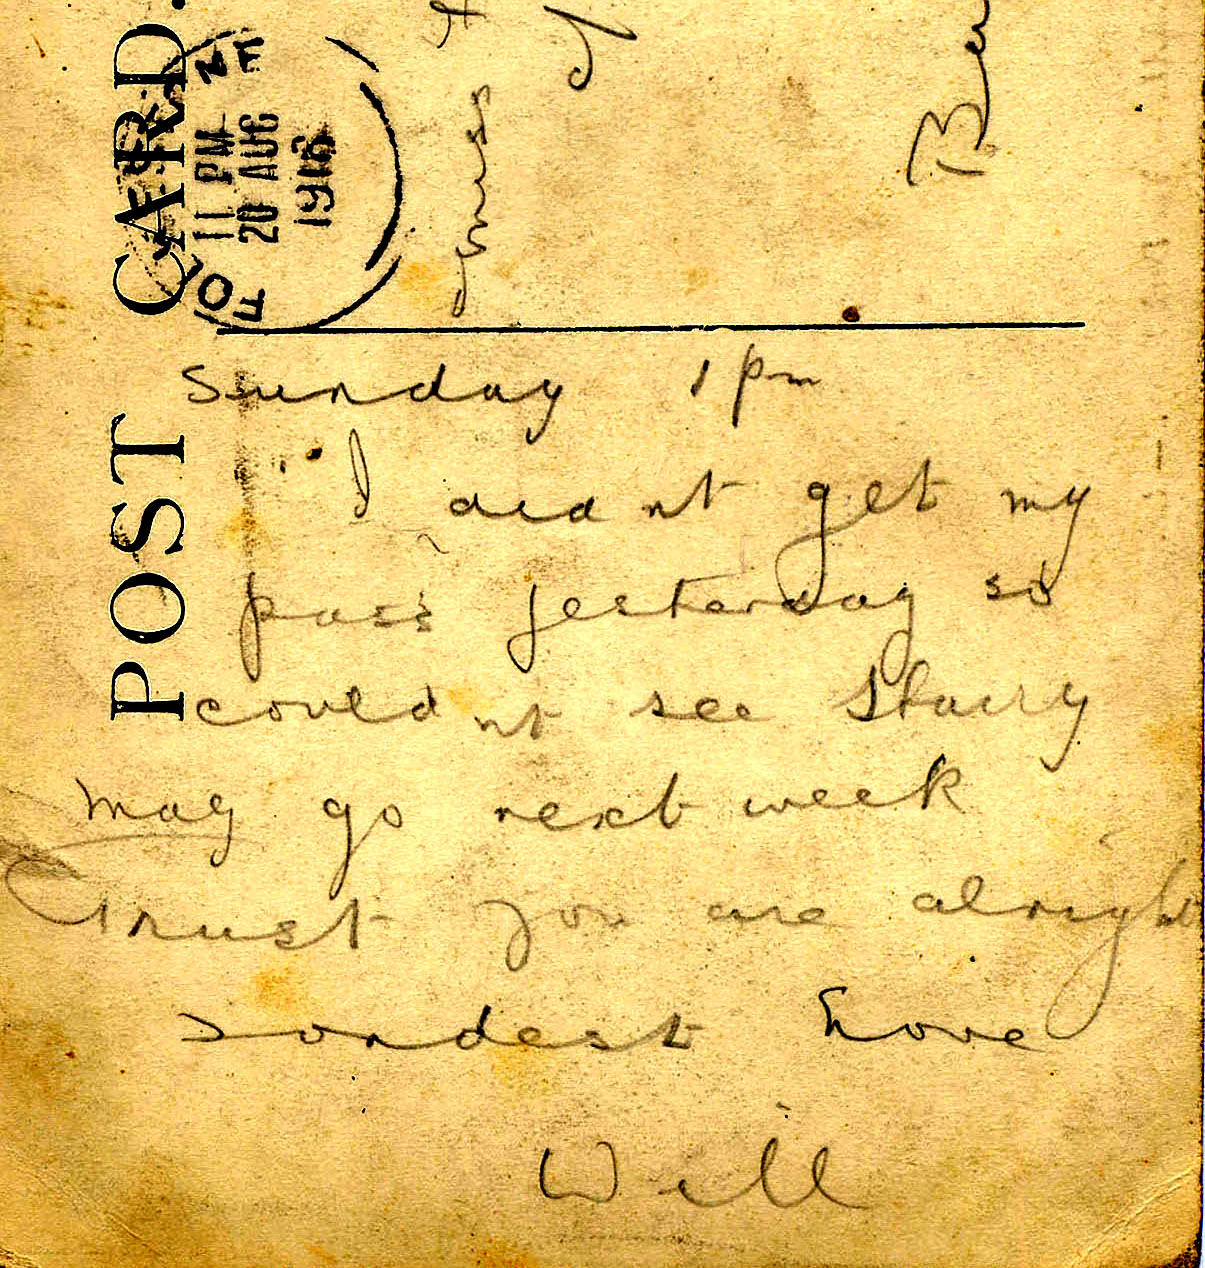 POST CARD.
FOL NE
11 PM
20 AUG
1916
Sunday 1 pm
I did nt get my
pass yesterday so
could nt see
may go next week
Trust you are alright
Fondest Love
Will